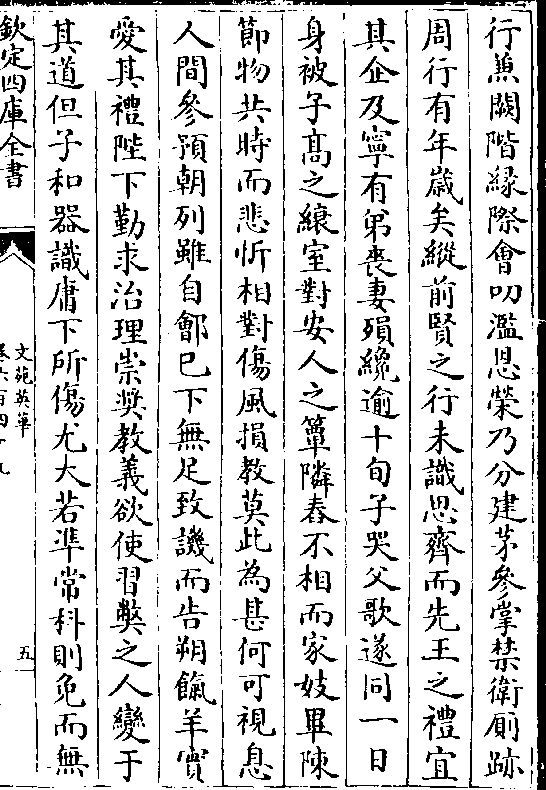 行無闕階緣際會叨濫恩榮乃分建茅參掌禁衛厠跡
周行有年歲矣縱前賢之行未識思齊而先王之禮宜
其企及寧有弟喪妻殞纔逾十旬子哭父歌遂同一日
身被子髙之縗室對安人之簟隣舂不相而家妓畢陳
節物共時而悲忻相對傷風損教莫此為甚何可視息
人間參預朝列雖自鄶已下無足致譏而告朔餼羊實
愛其禮陛下勤求治理崇奬教義欲使習獘之人變于
其道但子和器識庸下所傷尤大若準常科則免而無
欽定四庫全書
文苑英華
卷六百四十九
五